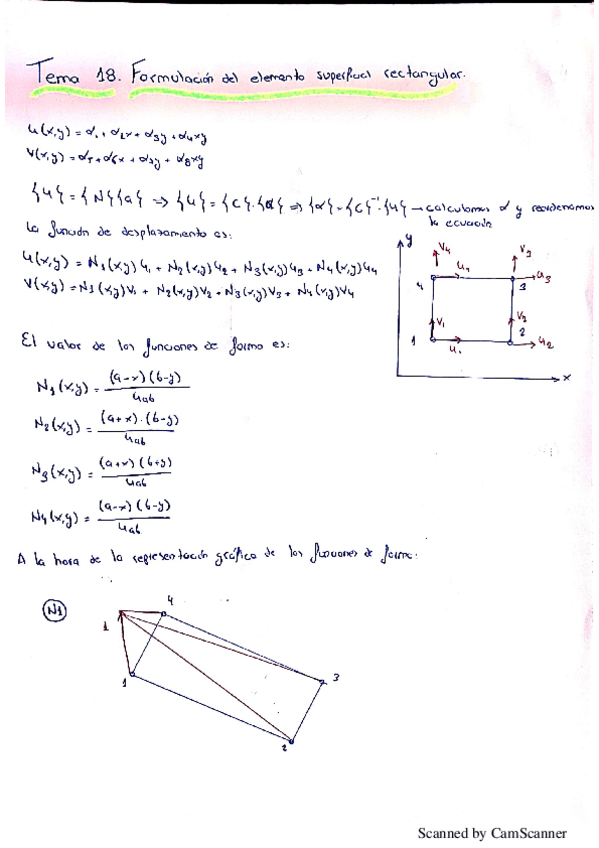 Tema 18. Formulación del elemento superficial rectangular.
u(x,y) = α₁ + α₂x + α₃y + α₄xy
v(x,y) = α₅ + α₆x + α₇y + α₈xy
{u} = {N}{a} ⇒ {u} = {C}·{α} ⇒ {α} = {C}⁻¹·{u} → calculamos α y reordenamos
la ecuación
la función de desplazamiento es:
u(x,y) = N₁(x,y)u₁ + N₂(x,y)u₂ + N₃(x,y)u₃ + N₄(x,y)u₄
v(x,y) = N₁(x,y)v₁ + N₂(x,y)v₂ + N₃(x,y)v₃ + N₄(x,y)v₄
y
v₄
v₃
u₄
u₃
4
3
v₁
v₂
1
2
u₁
u₂
x
El valor de las funciones de forma es:
N₁(x,y) = (a-x)(b-y) / 4ab
N₂(x,y) = (a+x)·(b-y) / 4ab
N₃(x,y) = (a+x)(b+y) / 4ab
N₄(x,y) = (a-x)(b-y) / 4ab
A la hora de la representación gráfica de las funciones de forma:
N1
4
1
3
1
2
Scanned by CamScanner